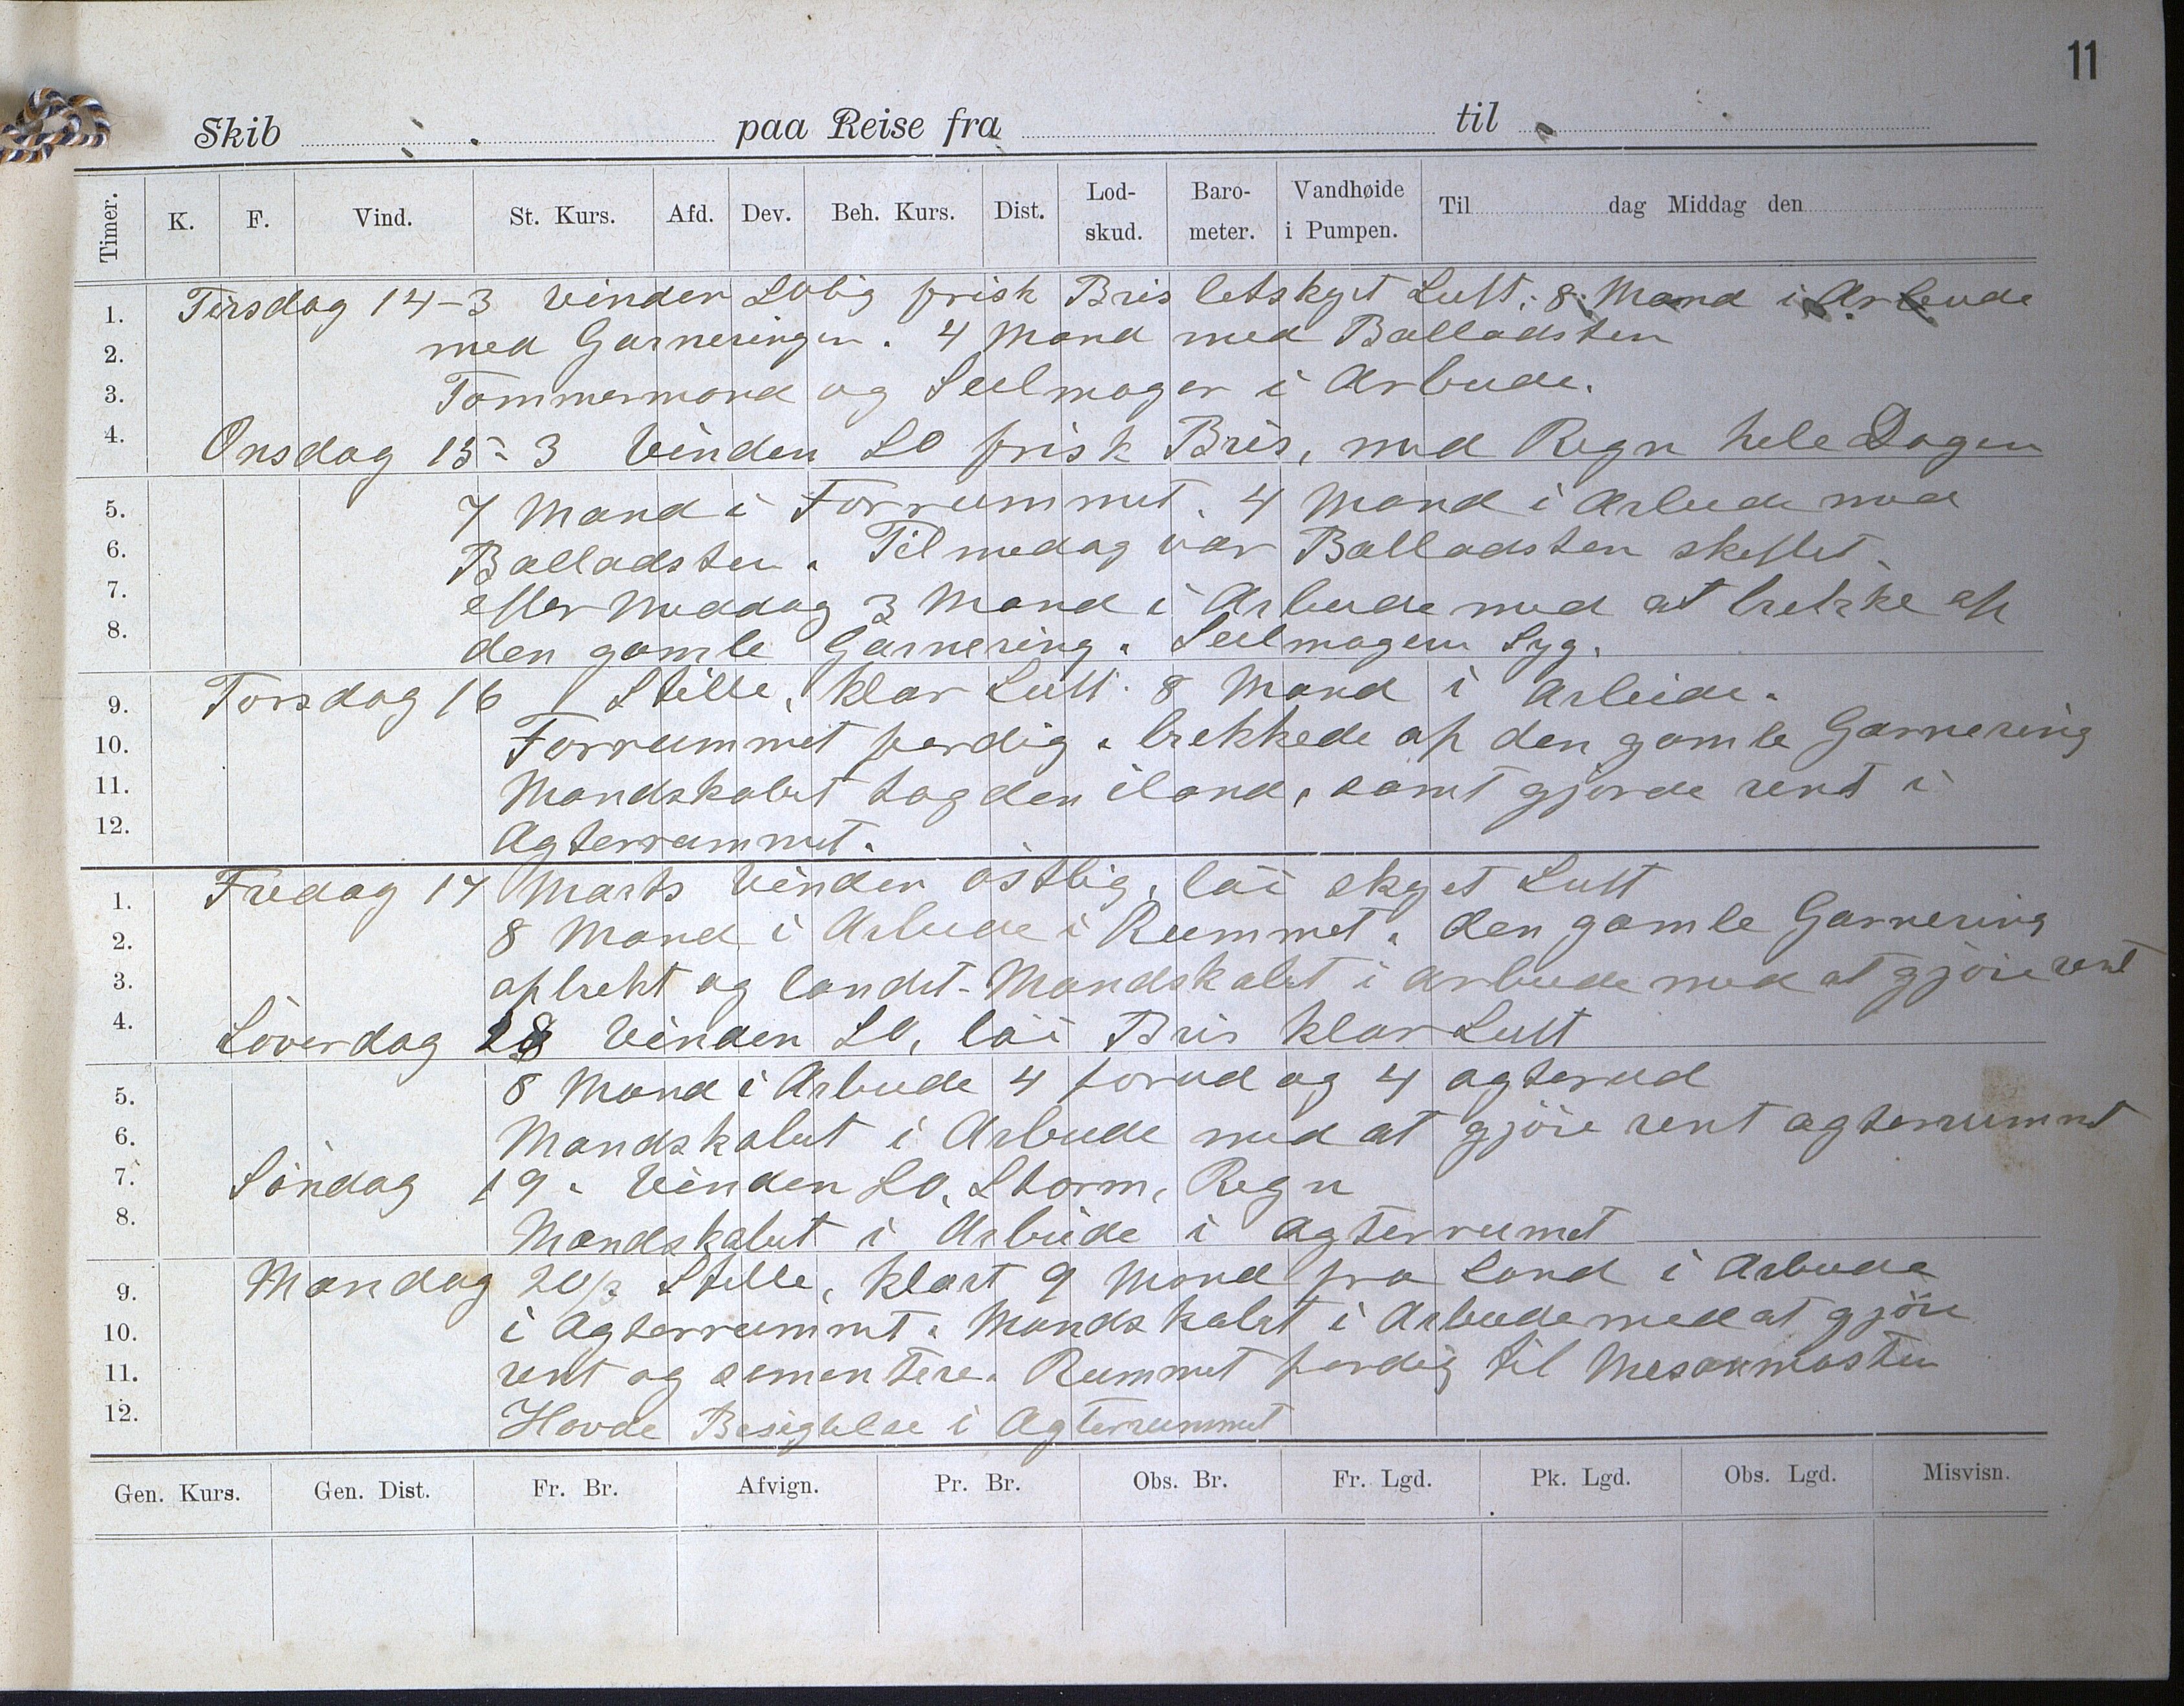 11
Skib paa Reise fra til
Timer. K. F. Vind. St. Kurs. Afd. Dev. Beh. Kurs. Dist. Lod-skud. Baro-meter. Vandhøide i Pumpen. Til dag Middag den
1. Tirsdag 14-3 Vinden SOlig frisk Bris letskyet Luft; 8 Mand i Arbeide
2. med Garneringen. 4 Mand med Balladsten
3. Tømmermand og Seilmager i Arbeide.
4. Onsdag 15-3 Vinden SO frisk Bris, med Regn hele Dagen
5. 7 Mand i Forrummet. 4 Mand i Arbeide med
6. Balladsten. Til medag var Balladsten skeftet.
7. efter Meddag 3 Mand i Arbeide med at brekke af
8. den gamle Garnering. Seilmageren Syg.
9. Torsdag 16 Stille, klar Luft. 8 Mand i Arbeide.
10. Forrummet ferdig. brekkede af den gamle Garnering
11. Mandskabet tog den iland, samt gjorde rent i
12. Agterrummet.
1. Fredag 17 Marts Vinden östlig, löi skyet Luft
2. 8 Mand i Arbeide i Rummet. den gamle Garnering
3. afbrekt og landet - Mandskabet i arbeide med at gjöre rent
4. Löverdag 18 Vinden SO, löi Bris klar Luft
5. 8 Mand i Arbeide 4 forud og 4 agterud
6. Mandskabet i Arbeide med at gjöre rent agterrummet
7. Söndag 19. Vinden SO. Storm, Regn
8. Mandskabet i Arbeide i Agterrumet
9. Mandag 20/3 Stille, klart 9 Mand fra Land i Arbeide
10. i Agterrummet. Mandskabet i Arbeide med at gjöre
11. rent og sementere. Rummet ferdig til Mesanmasten
12. Havde Besigtelse i Agterrummet
Gen. Kurs. Gen. Dist. Fr. Br. Afvign. Pr. Br. Obs. Br. Fr. Lgd. Pk. Lgd. Obs. Lgd. Misvisn.